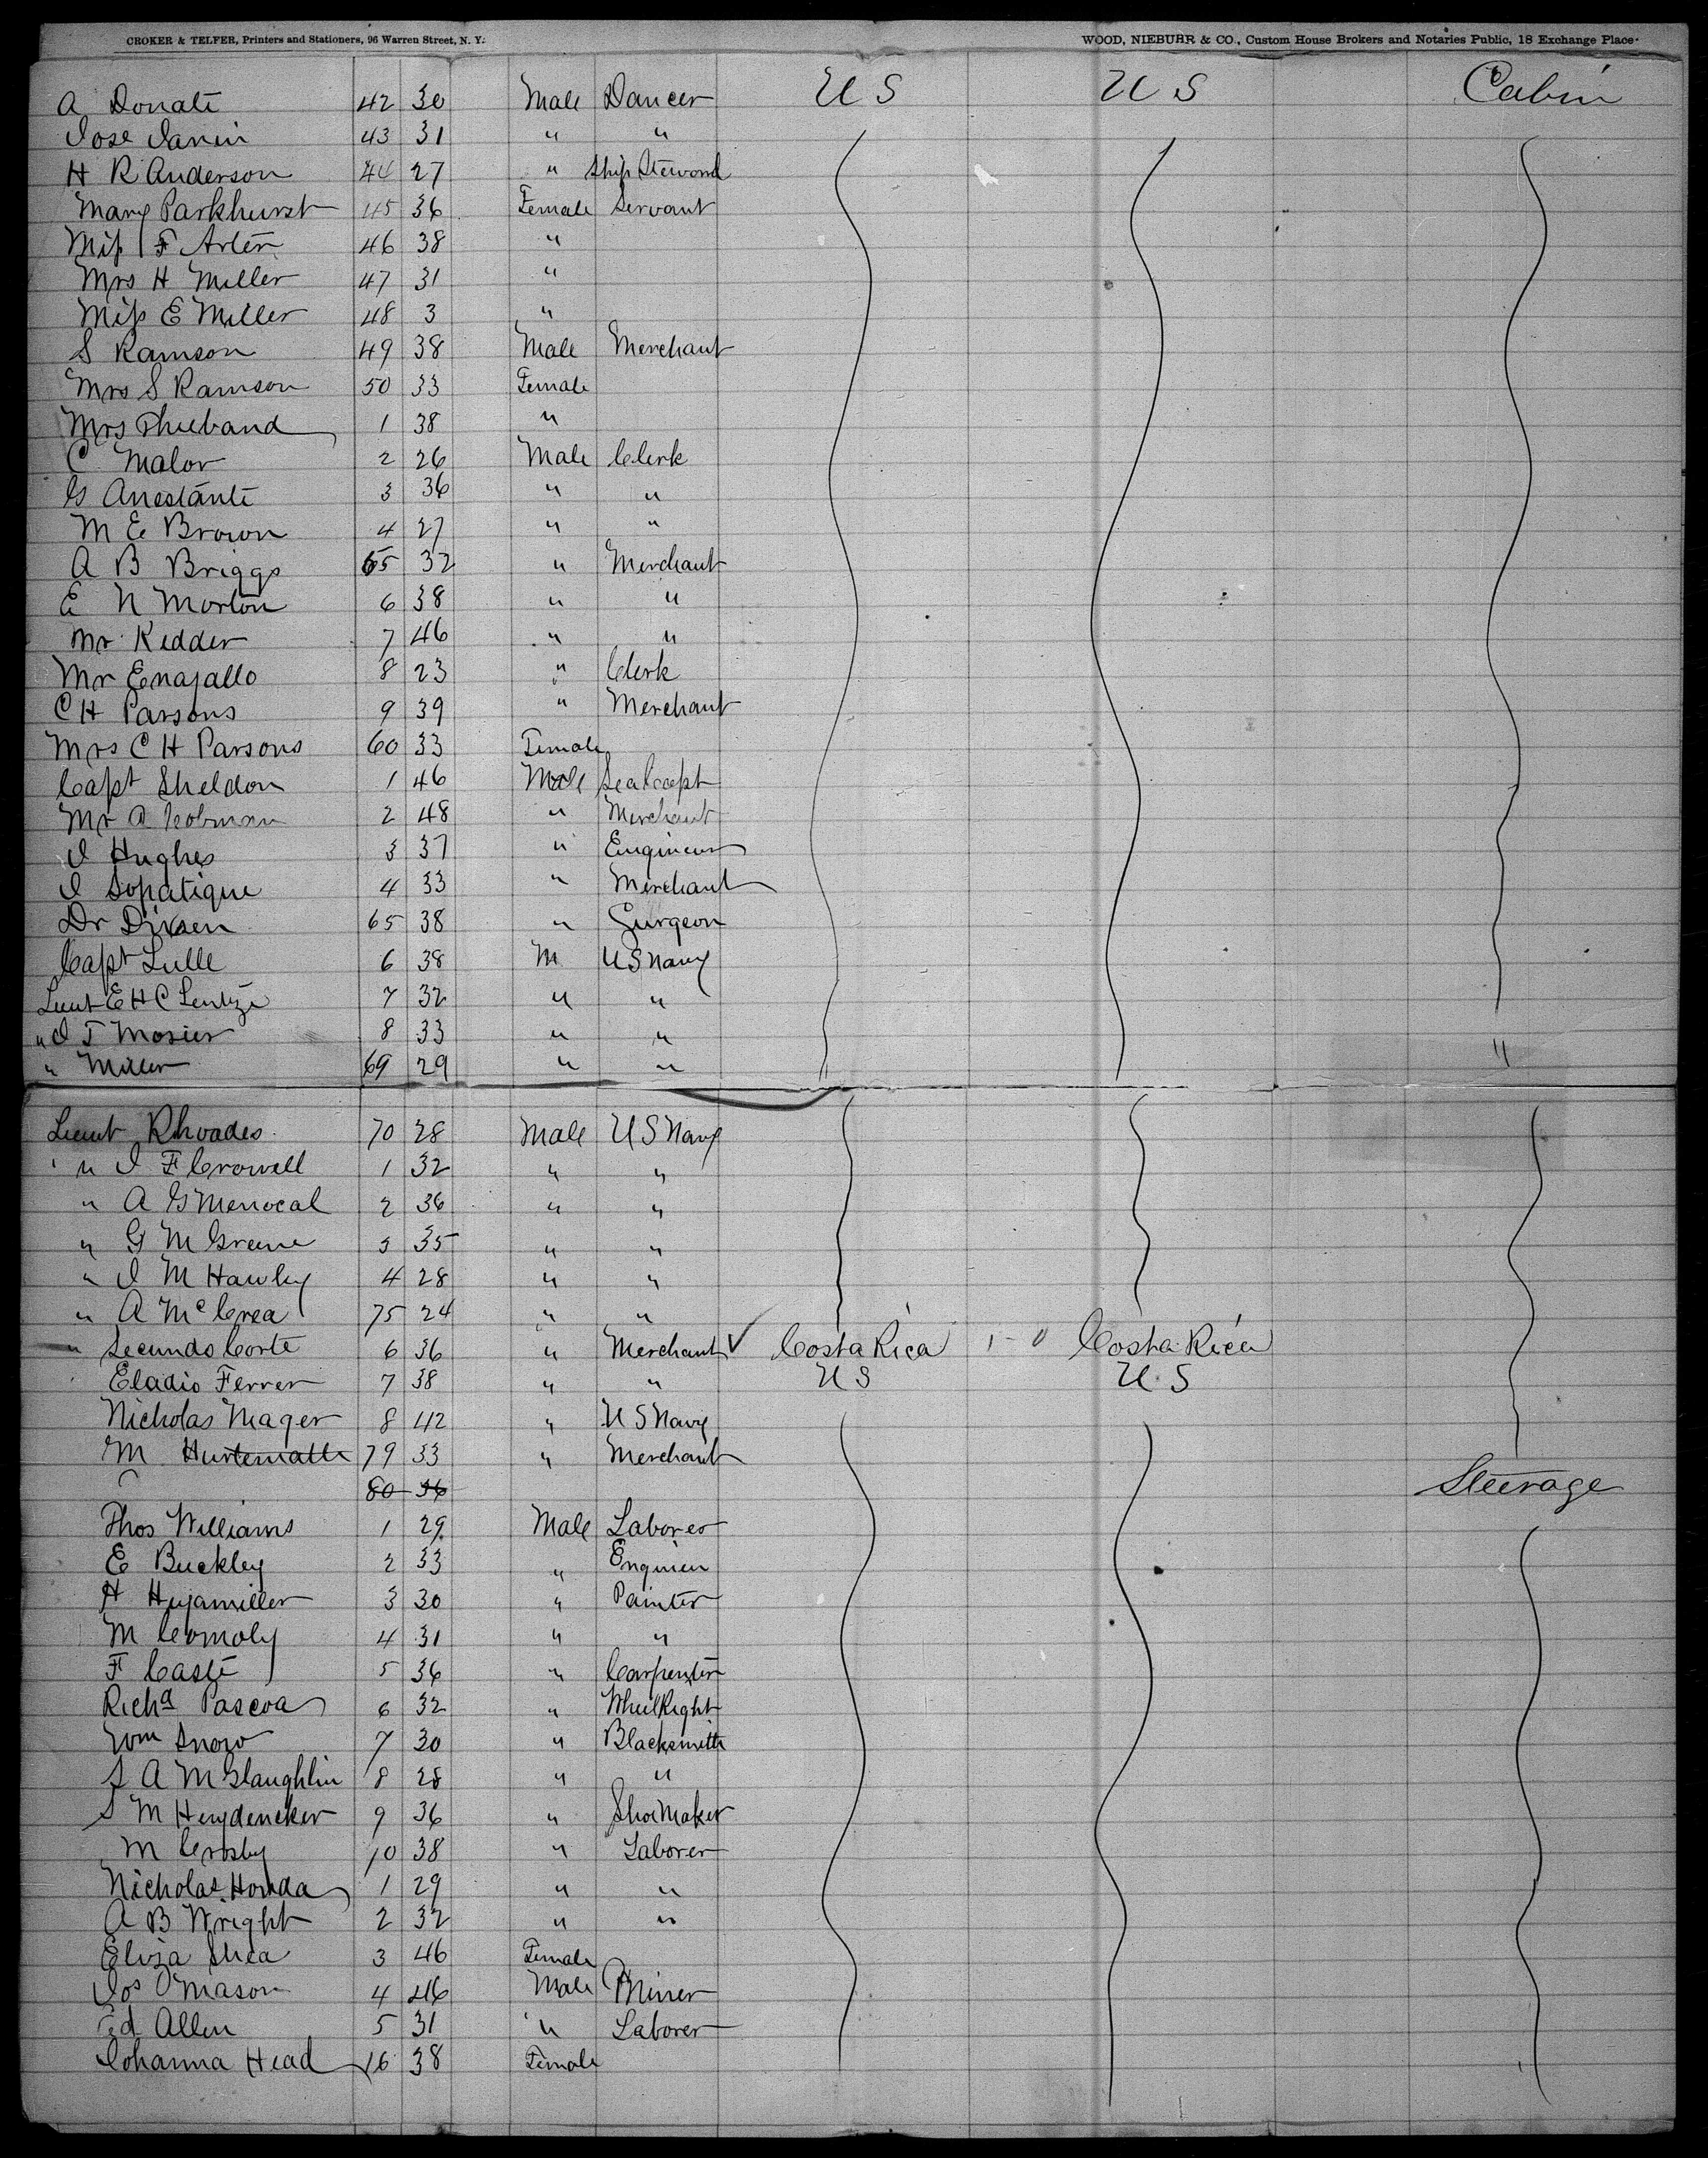 CROKER & TELFER, Printers and Stationers, 96 Warren Street, N. Y. WOOD, NIEBUHR & CO., Custom House Brokers and Notaries Public, 18 Exchange Place.
A Donati 42 30 Male Dancer U S U S Cabin
Jose Janin 43 31 " "
H R Anderson 44 27 " Ship Steward
Mary Parkhurst 45 36 Female Servant
Miss F Arter 46 38 "
Mrs H Miller 47 31 "
Miss E Miller 48 3 "
S Ramson 49 38 Male Merchant
Mrs S Ramson 50 33 Female
Mrs 1 38 "
C Malor 2 26 Male Clerk
G Anestanti 3 36 " "
M E Brown 4 27 " "
A B Briggs 55 32 " Merchant
E N Morton 6 38 " "
Mr Kedder 7 46 " "
Mr Enajallo 8 23 " Clerk
C H Parsons 9 39 " Merchant
Mrs C H Parsons 60 33 Female
Capt Sheldon 1 46 Male Sea Capt
Mr A Cobman 2 48 " Merchant
J Hughes 3 37 " Engineer
J Sopatique 4 33 " Merchant
Dr 65 38 " Surgeon
Capt Lulle 6 38 M U S Navy
Lieut E H C 7 32 " "
" J T Mosier 8 33 " "
" Miller 69 29 " " "
Lieut Rhoades 70 28 Male U S Navy
" J F Crowell 1 32 " "
" A G Menocal 2 36 " "
" G M Greene 3 35 " "
" J M Hawley 4 28 " "
" A McCrea 75 24 " "
" Secundo Corte 6 36 " Merchant ✓ Costa Rica 1 - 0 Costa Rica
Eladio Ferrer 7 38 " " U S U S
Nicholas Mager 8 42 " U S Navy
M 79 33 " Merchant
80 36 Steerage
Thos Williams 1 29 Male Laborer
E Buckley 2 33 " Engineer
H Hujamiller 3 30 " Painter
M Comoly 4 31 " "
F Casti 5 36 " Carpenter
Richd Pascoa 6 32 " WheelRight
Wm Snow 7 30 " Blacksmith
S A McGlaughlin 8 28 " "
S M Heydeneker 9 36 " ShoeMaker
M Crosby 10 38 " Laborer
Nicholas Honda 1 29 " "
A B Wright 2 32 " "
Eliza Shea 3 46 Female
Jos Mason 4 46 Male Miner
Ed Allen 5 31 " Laborer
Johanna Head 16 38 Female